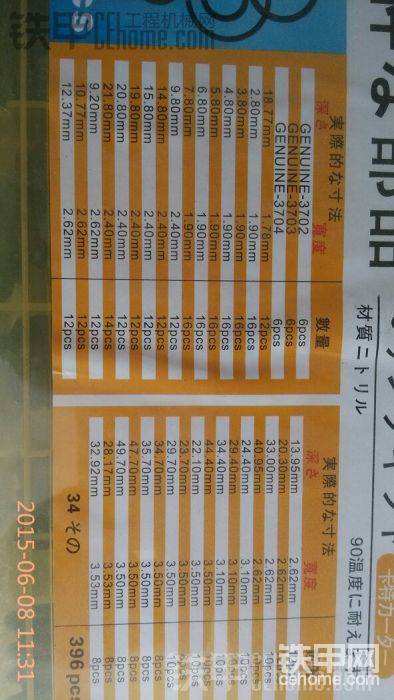 铁甲 工程机械网
cehome.com
实際的な寸法
深さ 寬度 數量
GENUINE-3702 6pcs
GENUINE-3703 6pcs
GENUINE-3704 6pcs
18.77mm 1.78mm 12pcs
2.80mm 1.90mm 16pcs
3.80mm 1.90mm 16pcs
4.80mm 1.90mm 16pcs
5.80mm 1.90mm 16pcs
6.80mm 1.90mm 16pcs
7.80mm 1.90mm 16pcs
9.80mm 2.40mm 12pcs
14.80mm 2.40mm 12pcs
15.80mm 2.40mm 12pcs
19.80mm 2.40mm 12pcs
20.80mm 2.40mm 12pcs
21.80mm 2.40mm 14pcs
9.20mm 2.62mm 12pcs
10.77mm 2.62mm 12pcs
12.37mm 2.62mm 12pcs
実際的な寸法
深さ 寬度
13.95mm 2.62mm
20.30mm 2.62mm
33.00mm 2.62mm
40.95mm 2.62mm
24.40mm 3.10mm
29.40mm 3.10mm
34.40mm 3.10mm
44.40mm 3.10mm
22.10mm 3.50mm
23.70mm 3.50mm
29.70mm 3.50mm
34.70mm 3.50mm 8pcs
35.70mm 3.50mm 8pcs
47.70mm 3.50mm 8pcs
49.70mm 3.50mm 8pcs
28.17mm 3.53mm 8pcs
32.92mm 3.53mm 8pcs
34 その 396 pcs
材質ニトリル
90温度に耐え
2015-06-08 11:31
铁甲网
cehome.com